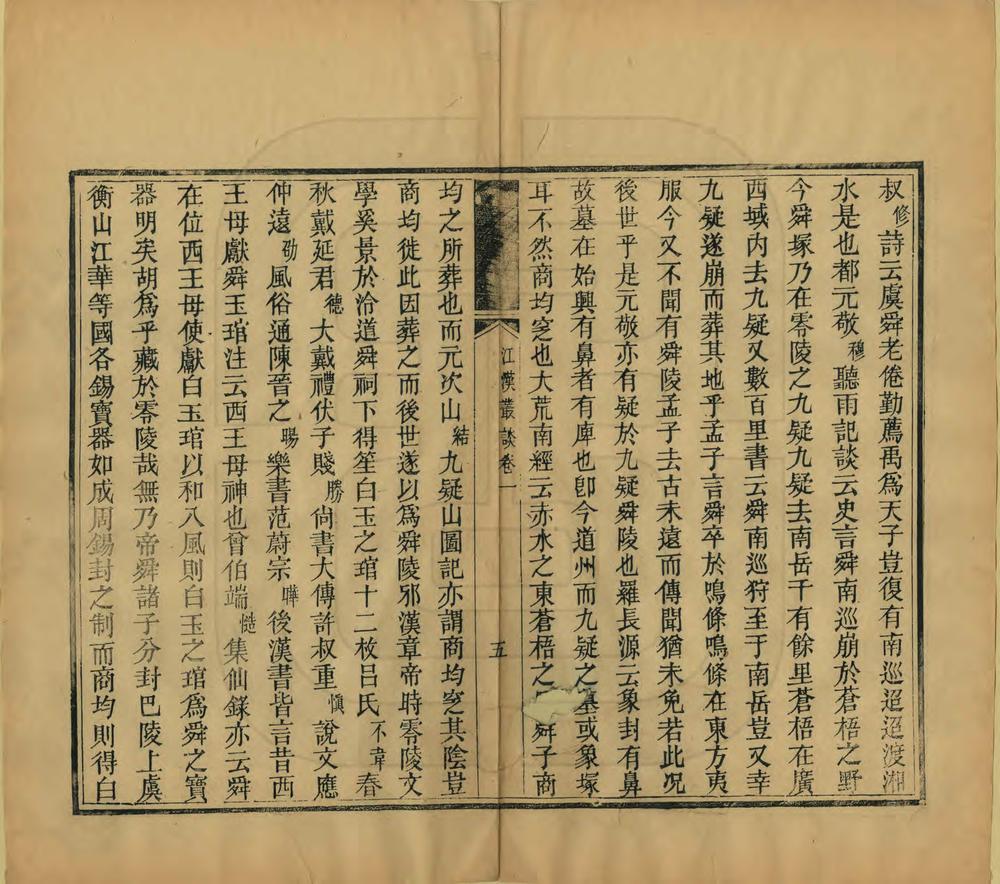 叔修詩云虞舜老倦勤薦禹爲天子豈復有南巡迢迢渡湘
水是也都元敬穆聽雨記談云史言舜南巡崩於蒼梧之野
今舜塚乃在零陵之九疑九疑去南岳千有餘里蒼梧在廣
西域内去九疑又數百里書云舜南巡狩至于南岳豈又幸
九疑遂崩而葬其地乎孟子言舜卒於鳴條鳴條在東方夷
服今又不聞有舜陵孟子去古未遠而傳聞猶未免若此况
後世乎是元敬亦有疑於九疑舜陵也羅長源云象封有鼻
故墓在始興有鼻者有庳也卽今道州而九疑之墓或象塚
耳不然商均窆也大荒南經云赤水之東蒼梧之舜子商
江漢叢談卷一
五
均之所葬也而元次山結九疑山圖記亦謂商均窆其陰豈
商均徙此因葬之而後世遂以爲舜陵邪漢章帝時零陵文
學奚景於泠道舜祠下得笙白玉之琯十二枚呂氏不韋春
秋戴延君德大戴禮伏子賤勝尚書大傳許叔重愼說文應
仲遠劭風俗通陳晉之暘樂書范蔚宗曄後漢書皆言昔西
王母獻舜玉琯注云西王母神也曾伯端慥集仙錄亦云舜
在位西王母使獻白玉琯以和八風則白玉之琯爲舜之寶
器明矣胡爲乎藏於零陵哉無乃帝舜諸子分封巴陵上虞
衡山江華等國各錫寶器如成周錫封之制而商均則得白